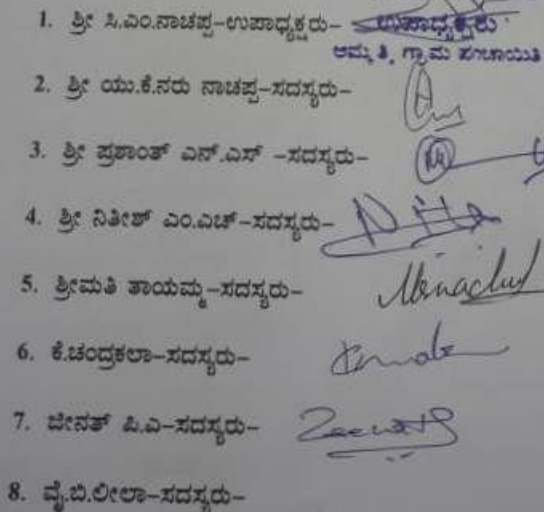 1. ಶ್ರೀ ಸಿ.ಎಂ.ನಾಚಪ್ಪ-ಉಪಾಧ್ಯಕ್ಷರು- ಉಪಾಧ್ಯಕ್ಷರು
ಅಮ್ಮತ್ತಿ, ಗ್ರಾಮ ಪಂಚಾಯಿತಿ
2. ಶ್ರೀ ಯು.ಕೆ.ನರು ನಾಚಪ್ಪ-ಸದಸ್ಯರು-
3. ಶ್ರೀ ಪ್ರಶಾಂತ್ ಎನ್.ಎಸ್ -ಸದಸ್ಯರು-
4. ಶ್ರೀ ನಿತೀಶ್ ಎಂ.ಎಚ್-ಸದಸ್ಯರು-
5. ಶ್ರೀಮತಿ ತಾಯಮ್ಮ-ಸದಸ್ಯರು-
6. ಕೆ.ಚಂದ್ರಕಲಾ-ಸದಸ್ಯರು-
7. ಜೀನತ್ ಪಿ.ಎ-ಸದಸ್ಯರು- Zeenath
8. ವೈ.ಬಿ.ಲೀಲಾ-ಸದಸ್ಯರು-